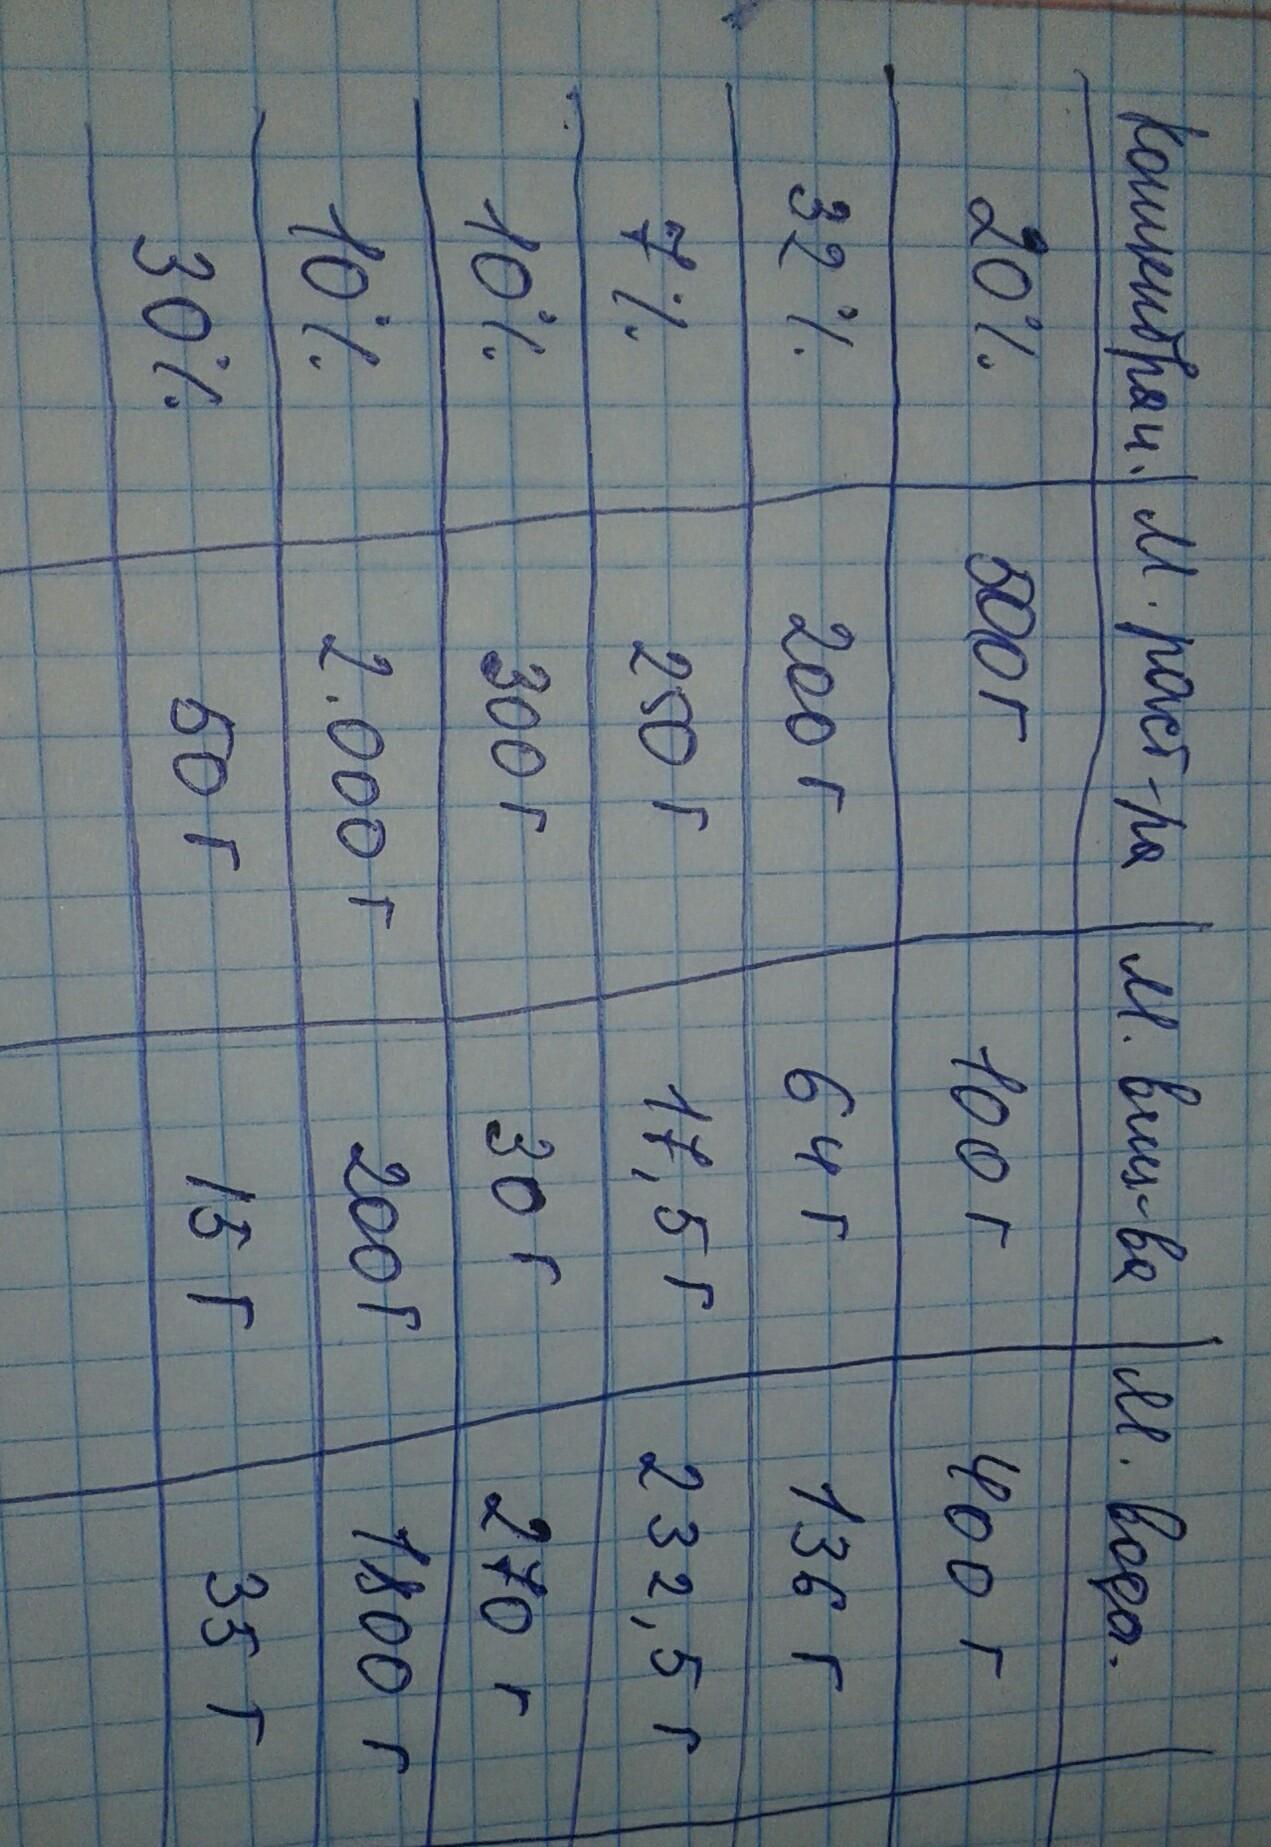 Концентрац. М. раст-ра М. вещ-ва М. вода.
20% 500 г 100 г 400 г
32% 200 г 64 г 136 г
7% 250 г 17,5 г 232,5 г
10% 300 г 30 г 270 г
10% 2.000 г 200 г 1800 г
30% 50 г 15 г 35 г